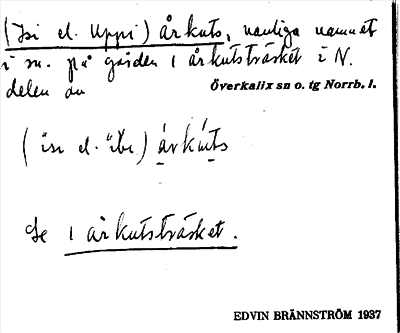 (Isi el. Uppi) årkuts, vanliga namnet
i sn. på gården 1 årkutsträsket i N.
delen av
Överkalix sn o. tg Norrb. l.
(isi el. ibe) árkúts
Se 1 årkutsträsket.
EDVIN BRÄNNSTRÖM 1937